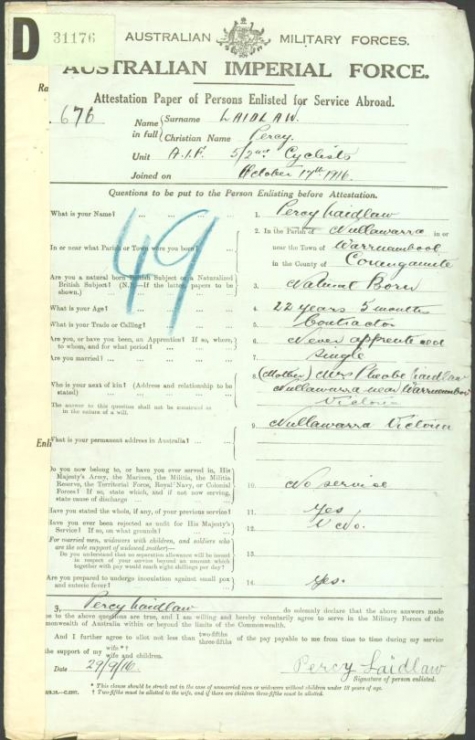 D 31176
AUSTRALIAN MILITARY FORCES.
AUSTRALIAN IMPERIAL FORCE.
Attestation Paper of Persons Enlisted for Service Abroad.
676
Name in full Surname LAIDLAW.
Christian Name Percy.
Unit A.I.F. 5/2nd Cyclists
Joined on October 17th 1916.
Questions to be put to the Person Enlisting before Attestation.
49
What is your Name? ... 1. Percy Laidlaw
In or near what Parish or Town were you born? 2. In the Parish of Nullawarra in or
near the Town of Warrnambool
in the County of Corangamite
Are you a natural born British Subject or a Naturalized
British Subject? (N.B.—If the latter, papers to be
shown.) ... 3. Natural Born
What is your Age? ... 4. 22 years 5 months
What is your Trade or Calling? ... 5. Contractor
Are you, or have you been, an Apprentice? If so, where,
to whom, and for what period? ... 6. Never apprenticed
Are you married? ... 7. Single
Who is your next of kin? (Address and relationship to be
stated) (Mother) Mrs Phoebe Laidlaw
Nullawarra near Warrnambool
Victoria
The answer to this question shall not be construed as
in the nature of a will.
What is your permanent address in Australia? ... 9. Nullawarra Victoria
Do you now belong to, or have you ever served in, His
Majesty's Army, the Marines, the Militia, the Militia
Reserve, the Territorial Force, Royal Navy, or Colonial
Forces? If so, state which, and if not now serving,
state cause of discharge ... 10. No service
Have you stated the whole, if any, of your previous service? 11. Yes
Have you ever been rejected as unfit for His Majesty's
Service? If so, on what grounds? 12. No.
For married men, widowers with children, and soldiers who
are the sole support of widowed mother—
Do you understand that no separation allowance will be issued
in respect of your service beyond an amount which
together with pay would reach eight shillings per day? 13.
Are you prepared to undergo inoculation against small pox
and enteric fever? 14. Yes.
Percy Laidlaw do solemnly declare that the above answers made
to the above questions are true, and I am willing and hereby voluntarily agree to serve in the Military Forces of the
Commonwealth of Australia within or beyond the limits of the Commonwealth.
And I further agree to allot not less than two-fifths three-fifths of the pay payable to me from time to time during my service
the support of my wife*† wife and children.
Date 29/9/16. Percy Laidlaw
Signature of person enlisted.
* This clause should be struck out in the case of unmarried men or widowers without children under 18 years of age.
† Two-fifths must be allotted to the wife, and if there are children three-fifths must be allotted.